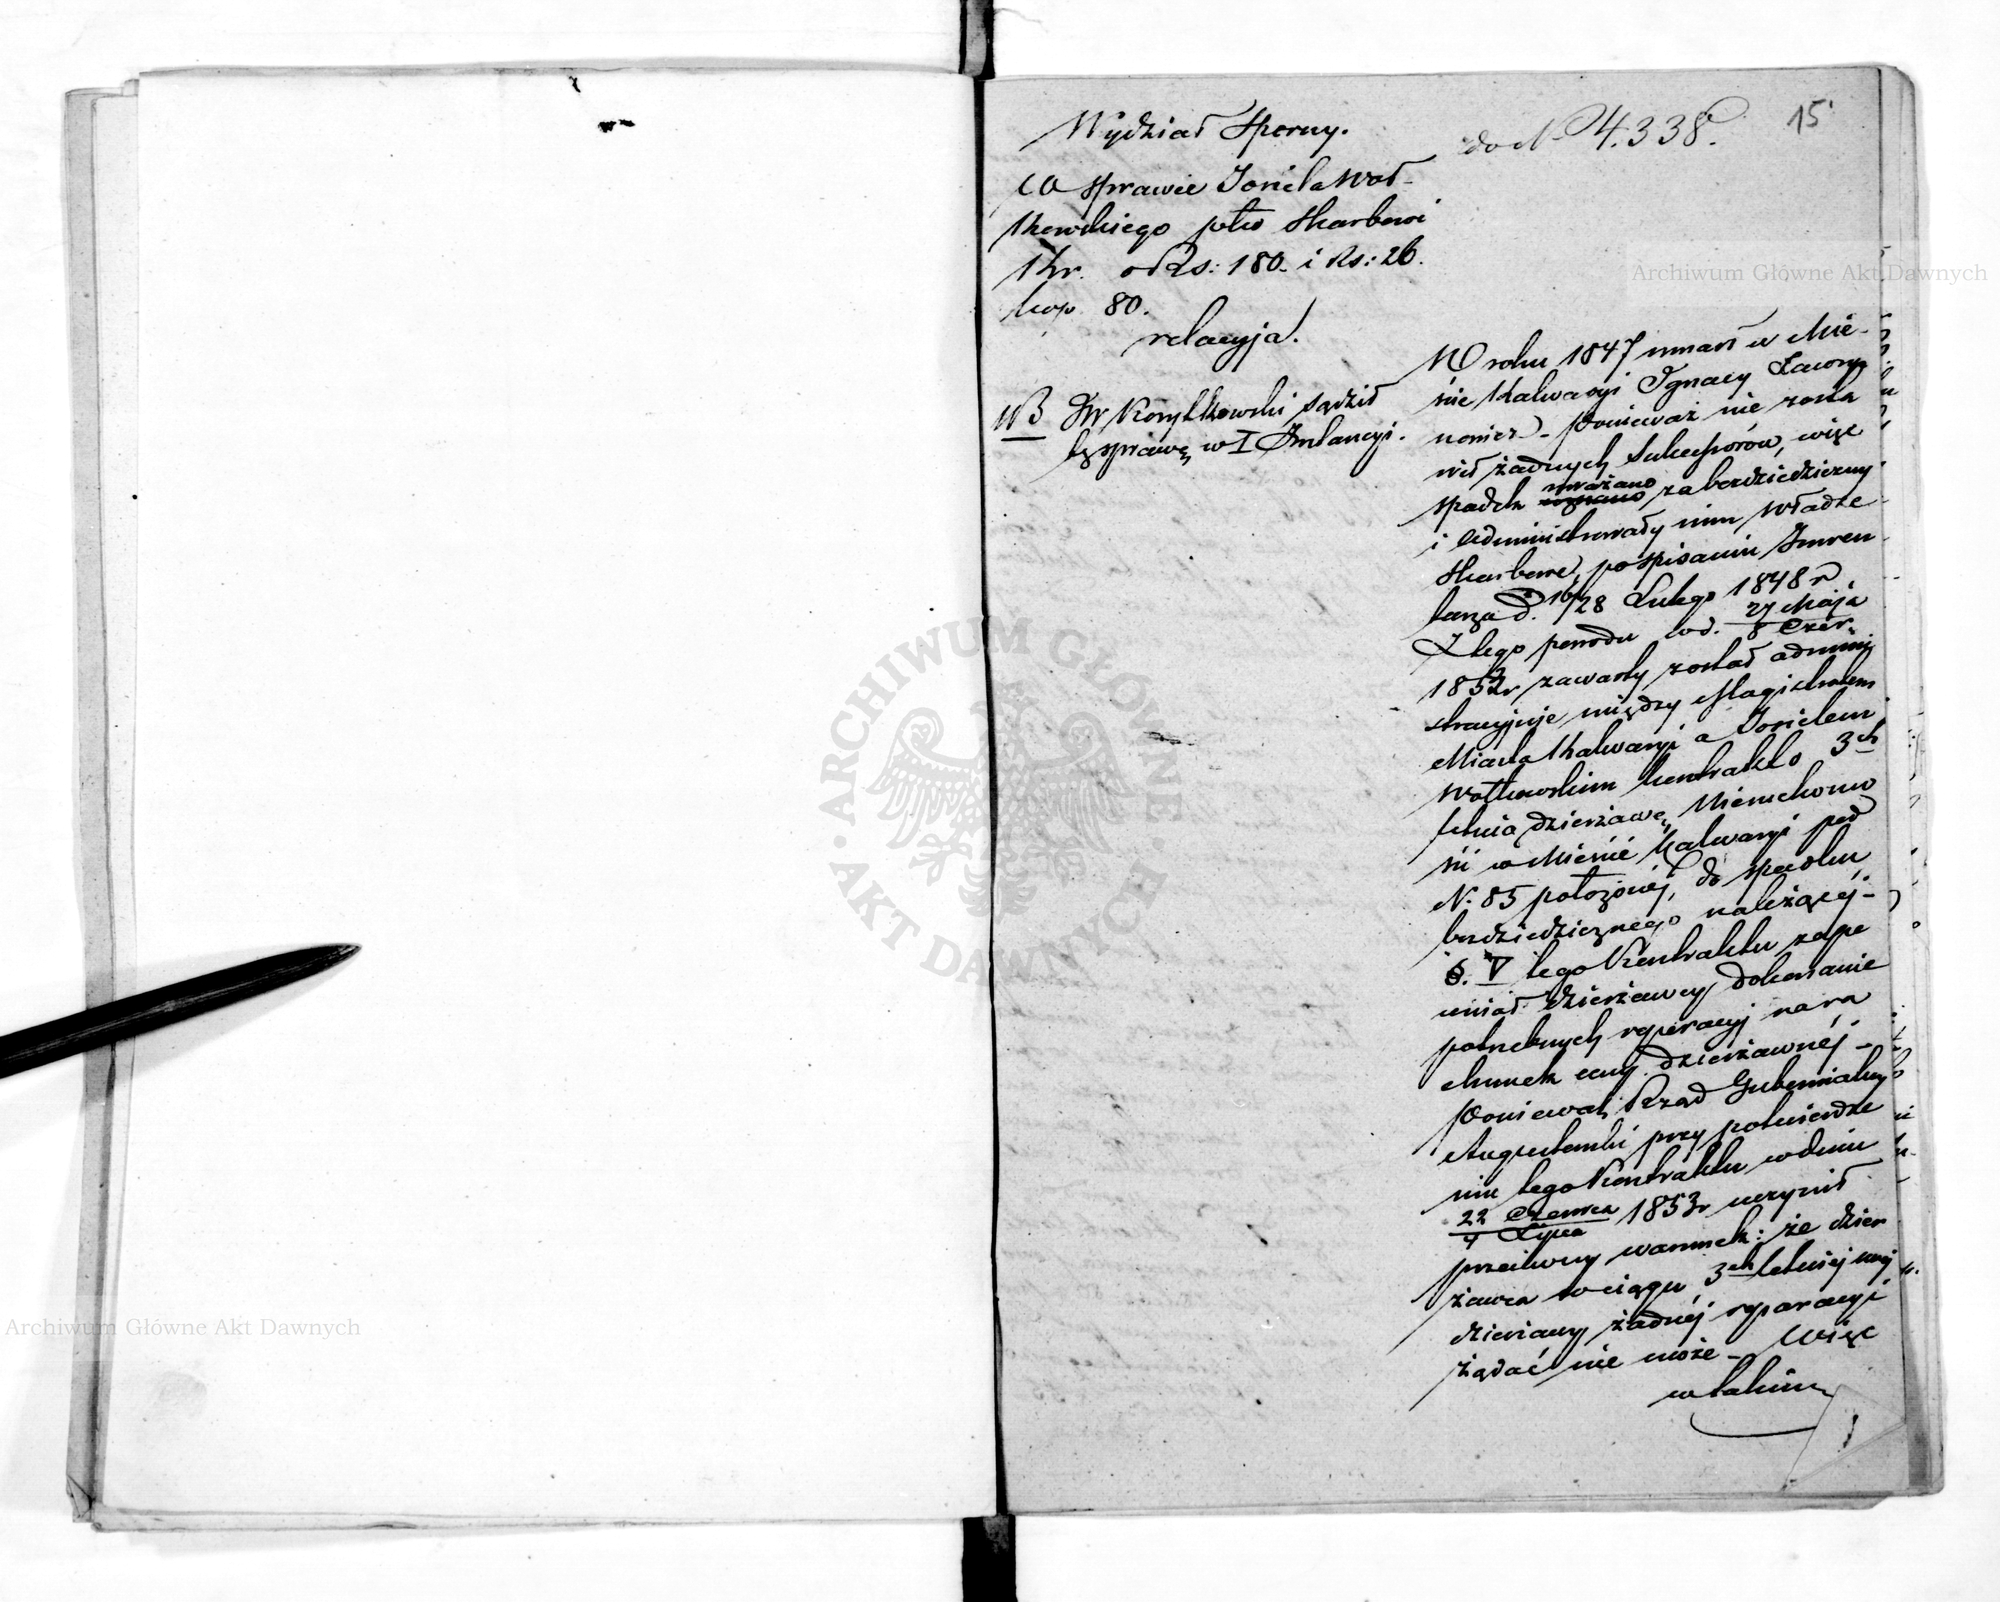 15
do N. 4.338.
Wydział Sporny.
W sprawie Josiela Woł-
kowskiego pko Skarbowi
Kr. o Rs: 180. i Rs: 26.
kop. 80.
relacyja.
NB Sędzia sądził
tę sprawę w I Instancyi.
W roku 1847 umarł w Mie-
ście Kalwaryi Ignacy
Ponieważ nie zosta
wił żadnych Sukcesorów, więc
spadek uważano za bezdziedziczny
i administrowały nim Władze
Skarbowe, po spisaniu Inwen
tarza d. 16/28 Lutego 1848 r
Z tego powodu w d. 27 Maja
8 Czer.
1853r zawarty został admini
stracyjnie między Magistratem
Miasta Kalwaryi a Josielem
Wołkowskim kontrakt o 3ch
letnią dzierżawę Nieruchomo
ści w Mieście Kalwaryi pod
N. 85 położonej, do spadku
bezdziedzicznego należącej -
§. V tego Kontraktu zape
wniał dzierżawcy, dokonanie
potrzebnych reperacyj na ra
chunek ceny dzierżawnéj -
Ponieważ Rząd Gubernialny
Augustowski przy potwierdze
niu tego Kontraktu w dniu
22 Czerwca
4 Lipca 1853r uczynił
przeciwny warunek: że dzier
żawca w ciągu 3ch letniej
dzierżawy żadnéj reparacyi
żądać nie może - Więc
w takim
Archiwum Główne Akt Dawnych
Archiwum Główne Akt Dawnych
· ARCHIWUM GŁÓWNE · AKT DAWNYCH